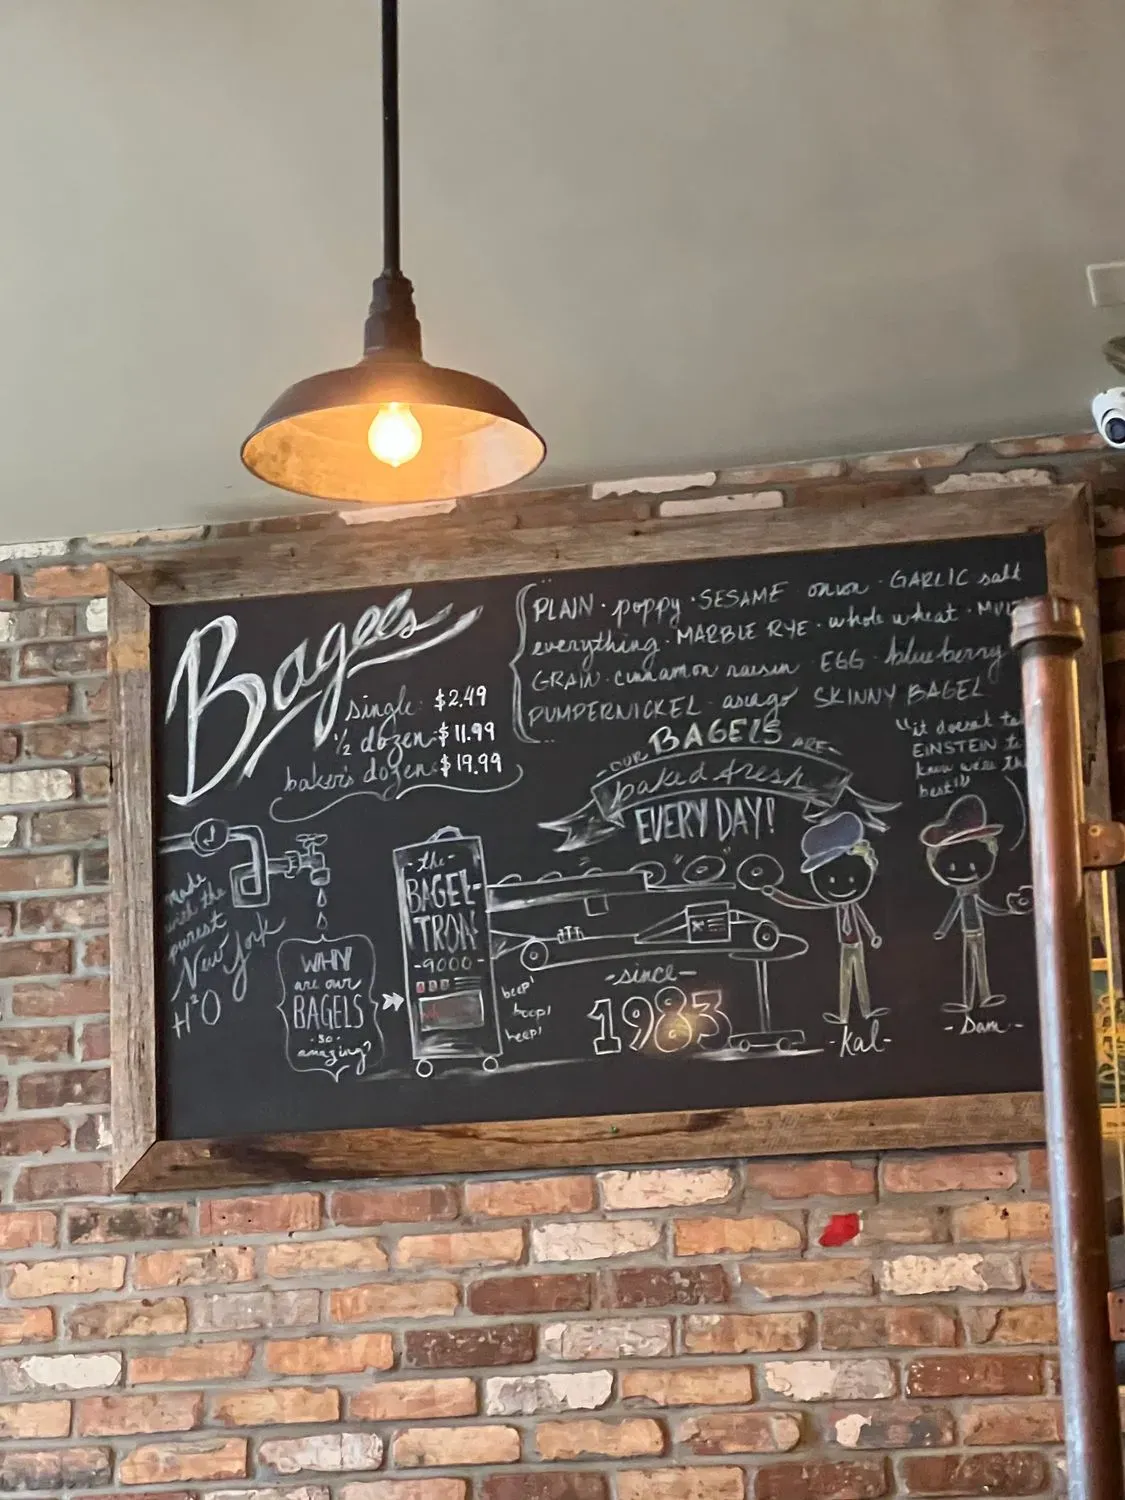 Bagels
single: $2.49
1/2 dozen $11.99
baker's dozen $19.99
PLAIN · poppy · SESAME onion · GARLIC salt
everything · MARBLE RYE · whole wheat ·
GRAIN · cinnamon raisin · EGG · blueberry
PUMPERNICKEL · asiago SKINNY BAGEL
-OUR BAGELS ARE-
baked fresh
EVERY DAY!
"it doesn't
EINSTEIN
know we're
best!"
made
with the
purest
New York
H2O
WHY
are our
BAGELS
·so·
amazing?
-the-
BAGEL-
TRON
-9000-
beep!
boop!
beep!
-since-
1983
-Kal-
-Sam-